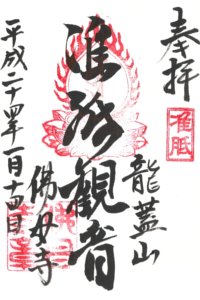 奉拝
准胝
龍蓋山
准胝観音
佛母寺
平成二十四年一月十四日